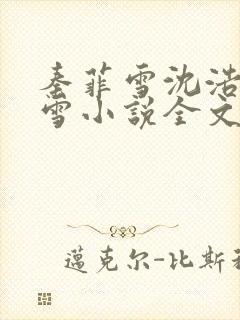 秦菲雪沈浩
雪小说全文
邁克尔-比斯利